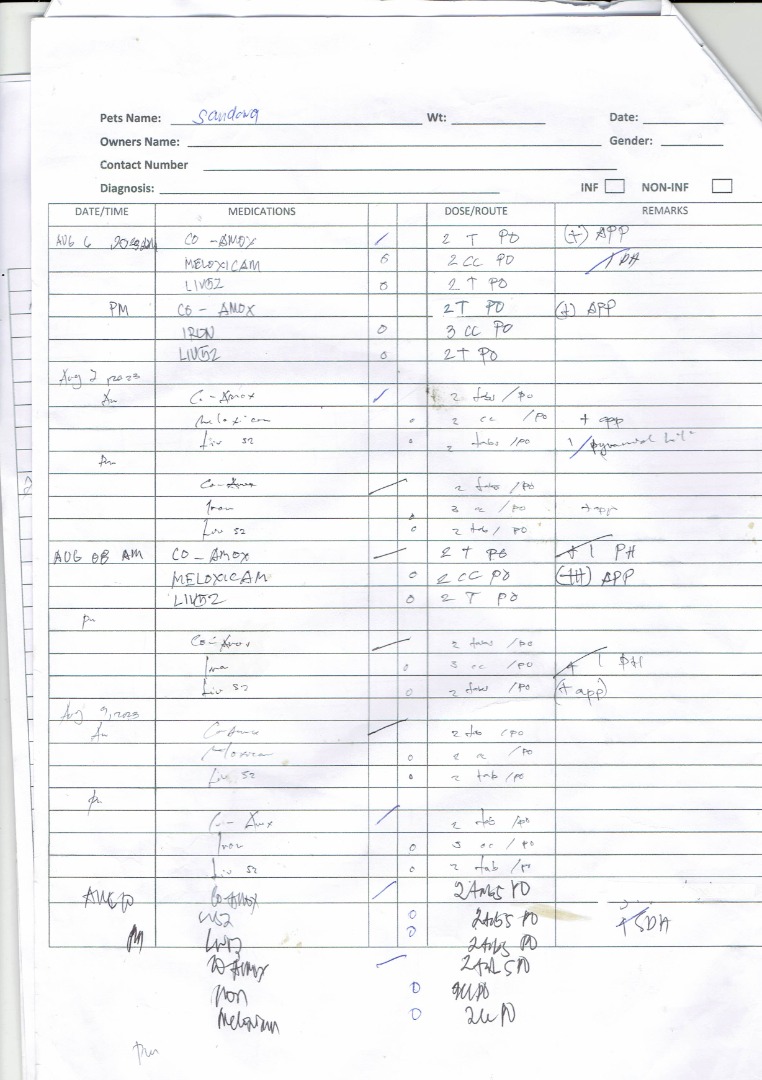 Pets Name: Sandong Wt: Date:
Owners Name: Gender:
Contact Number
Diagnosis: INF NON-INF
DATE/TIME MEDICATIONS DOSE/ROUTE REMARKS
AUG 6 CO-AMOX / 2 T PO (+) APP
MELOXICAM 0 2 CC PO
LIV52 0 2 T PO
PM CO-AMOX 2T PO (+) APP
IRON 0 3 CC PO
LIV52 0 2T PO
Aug 7, 2023
Am Co-Amox / 2 tabs/po
Meloxicam 0 2 cc /po + app
Liv 52 0 2 tabs/po
Pm
Co-Amox / 2 tabs /po
Iron 3 cc /po + app
Liv 52 0 2 tab/po
AUG 08 AM CO-AMOX / 2 T PO + 1 PH
MELOXICAM 0 2 CC PO (+) APP
LIV52 0 2 T PO
pm
Co-Amox / 2 tabs /po
Iron 0 3 cc /po + 1 PH
Liv 52 0 2 tabs /po (+ app)
Aug 9, 2023
Am Co-Amox / 2 tab /po
Meloxicam 0 2 cc /po
Liv 52 0 2 tab/po
pm
Co-Amox / 2 tab /po
Iron 0 3 cc /po
Liv 52 0 2 tab/po
AUG 10 Co-AMOX / 2 tabs PO
LIV52 0 2 tabs PO
PM LIV52 0 2 tabs PO
CO AMOX / 2 tabs PO
Iron 0
Meloxicam 0 2cc PO
pm